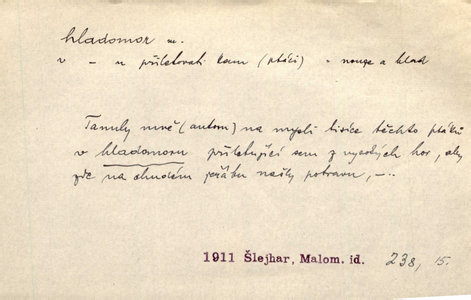 hladomor m.
v – u přiletovati kam (ptáci) = nouze a hlad
Tanuly mně (autom) na mysli tisíce těchto ptáků
v hladomoru přiletující sem z vysokých hor, aby
zde na chudém jeřábu našly potravu, –.
1911 Šlejhar, Malom. id. 238, 15.